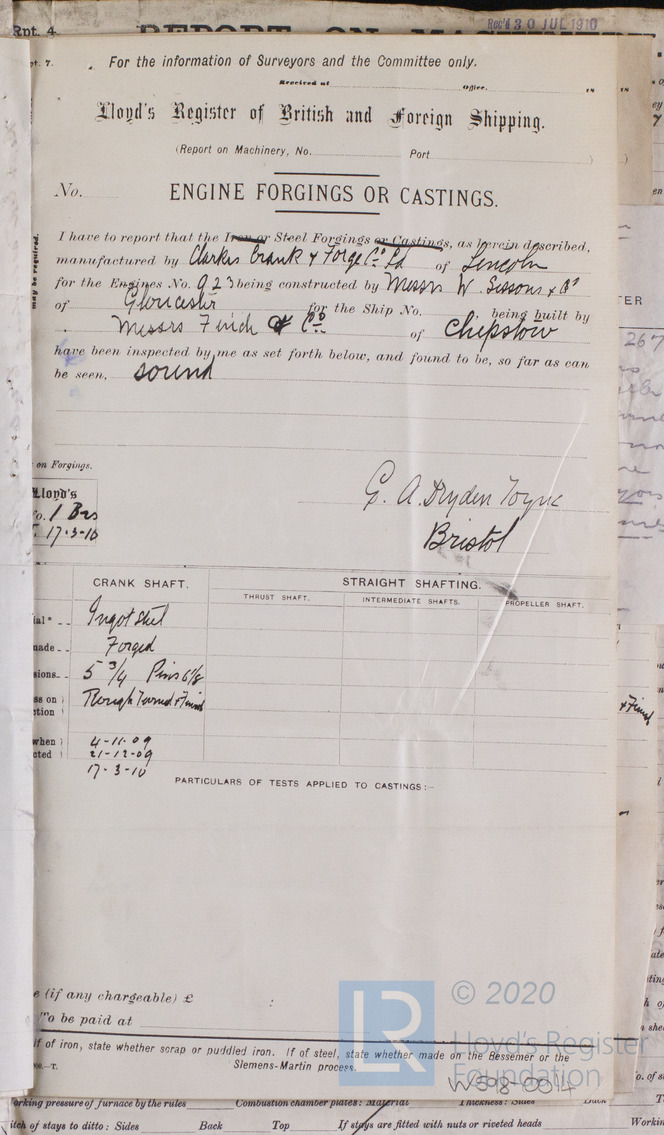 Rpt. 4.
Rec'd 30 JUL 1910
REPORT ON MACHINERY
pt. 7.
For the information of Surveyors and the Committee only.
Received at Office, 18
18
Lloyd's Register of British and Foreign Shipping.
(Report on Machinery, No. Port )
No.
ENGINE FORGINGS OR CASTINGS.
I have to report that the Iron or Steel Forgings or Castings, as herein described,
manufactured by Clarkes Crank & Forge Co Ld of Lincoln
for the Engines No. 923 being constructed by Messrs W. Sissons & Co
of Gloucester for the Ship No. , being built by
Messrs Finch & Co of Chepstow
have been inspected by me as set forth below, and found to be, so far as can
be seen, sound
may be required.
TER
267
on Forgings.
Lloyd's
o. 1 Brs
17-3-10
G. A. Dryden
Bristol
CRANK SHAFT.
STRAIGHT SHAFTING.
THRUST SHAFT.
INTERMEDIATE SHAFTS.
PROPELLER SHAFT.
ial* Ingot Steel
made Forged
sions 5 3/4 Pins 6 1/8
ss on Rough Turned & Finish
ction
& Finish
when 4-11-09
cted 21-12-09
17-3-10
PARTICULARS OF TESTS APPLIED TO CASTINGS:—
e (if any chargeable) £ :
To be paid at
If of iron, state whether scrap or puddled iron. If of steel, state whether made on the Bessemer or the
Siemens-Martin process.
LR
© 2020
Lloyd's Register
Foundation
W598-0014
orking pressure of furnace by the rules Combustion chamber plates: Material Thickness: Sides Back
itch of stays to ditto: Sides Back Top If stays are fitted with nuts or riveted heads Workin